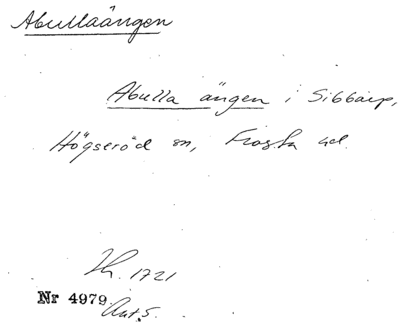 Abullaängen
Abulla ängen i Sibbarp,
Högseröd sn, Frosta hd.
Lk. 1721
Nr 4979
Ant. 5.